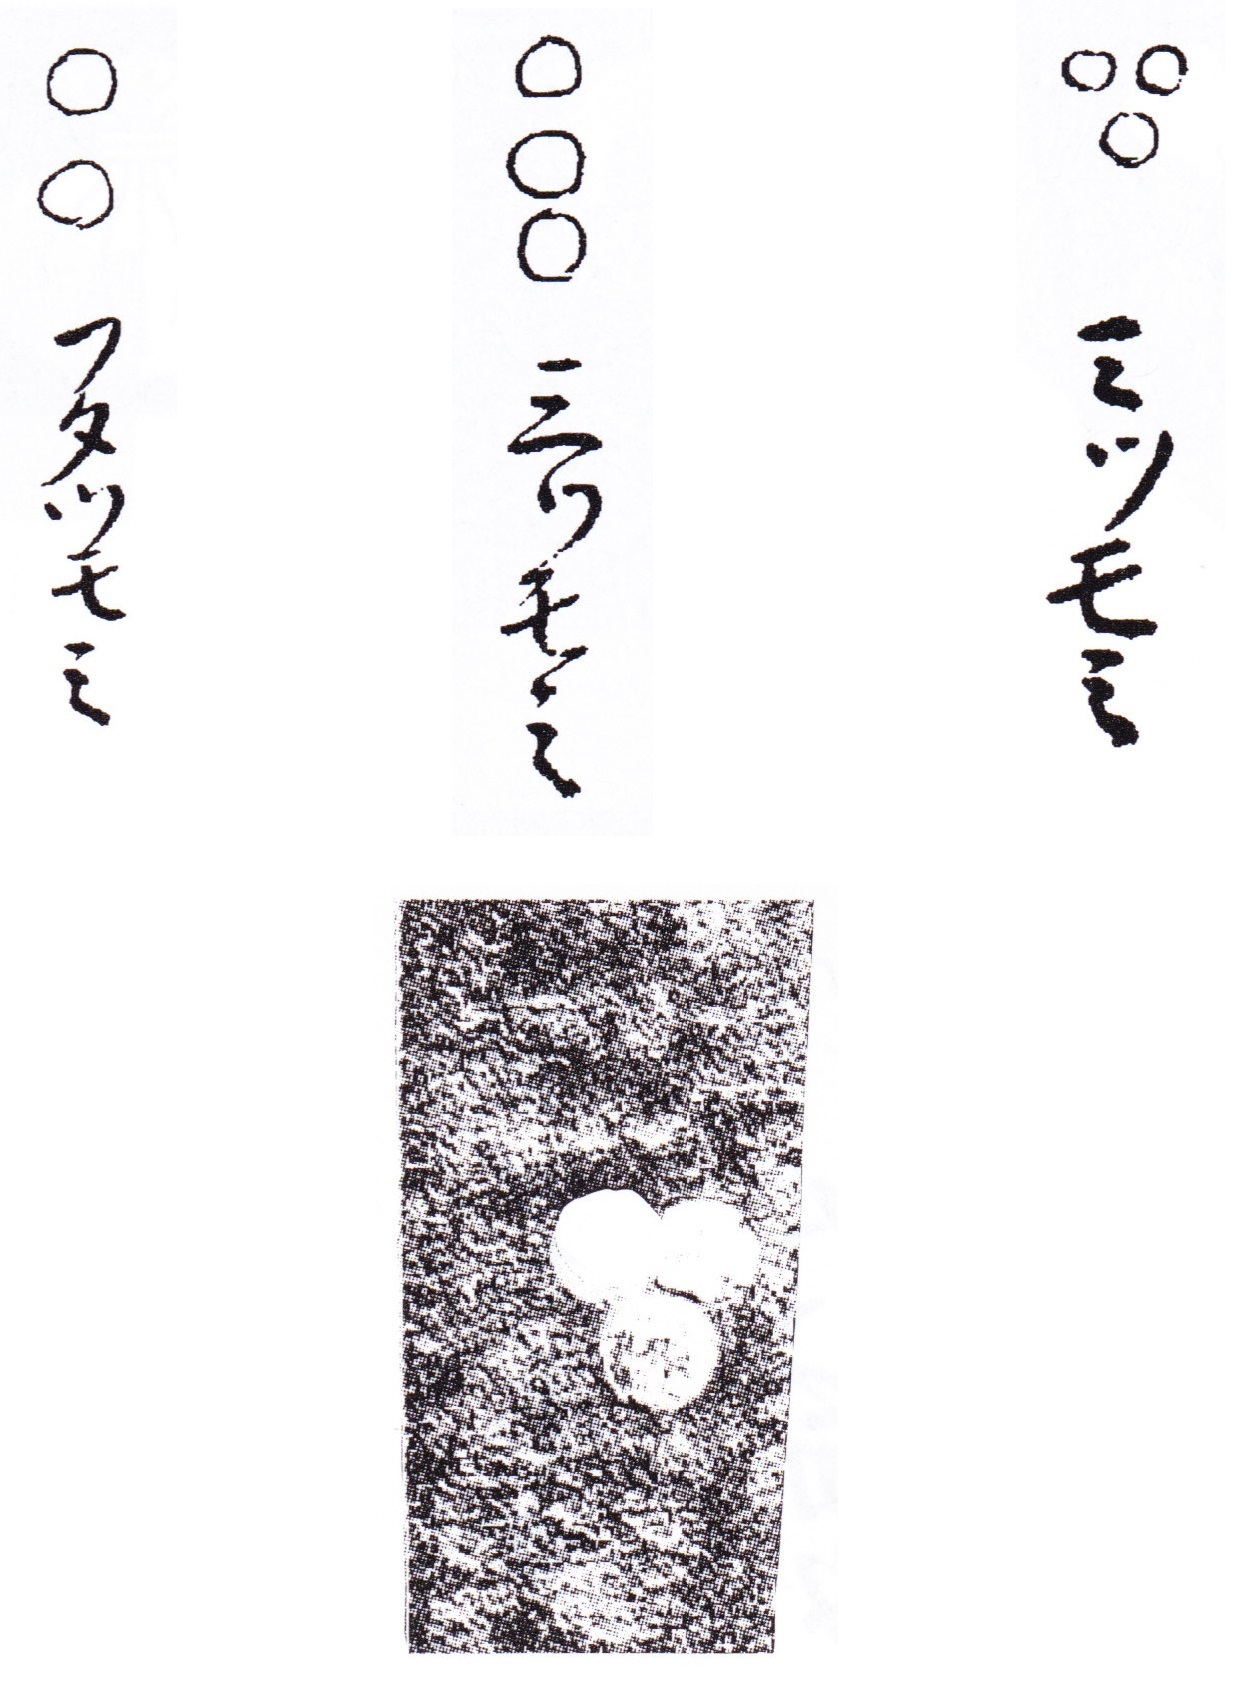 ミツモミ
三ツモミ
フタツモミ